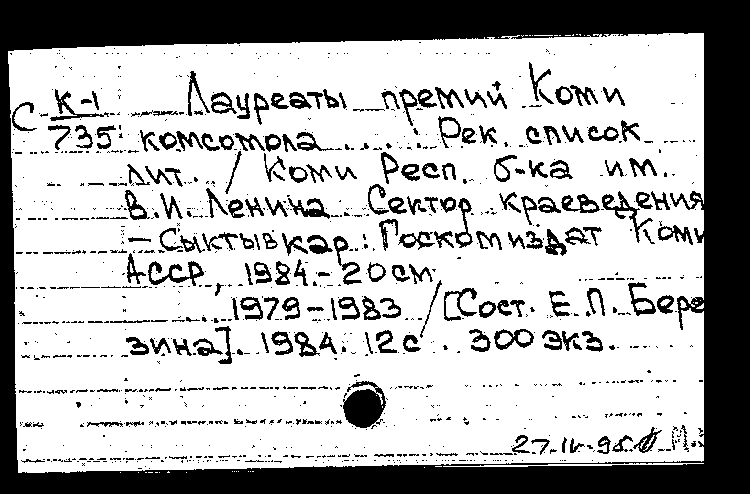 С К-1 Лауреаты премий Коми
735 комсомола ... : Рек. список
лит. / Коми Респ. б-ка им.
В.И. Ленина. Сектор краеведения
– Сыктывкар: Госкомиздат Коми
АССР, 1984.- 20 см
... 1979-1983 / [Сост. Е.П. Бере
зина]. 1984. 12 с. 300 экз.
27.IV.95